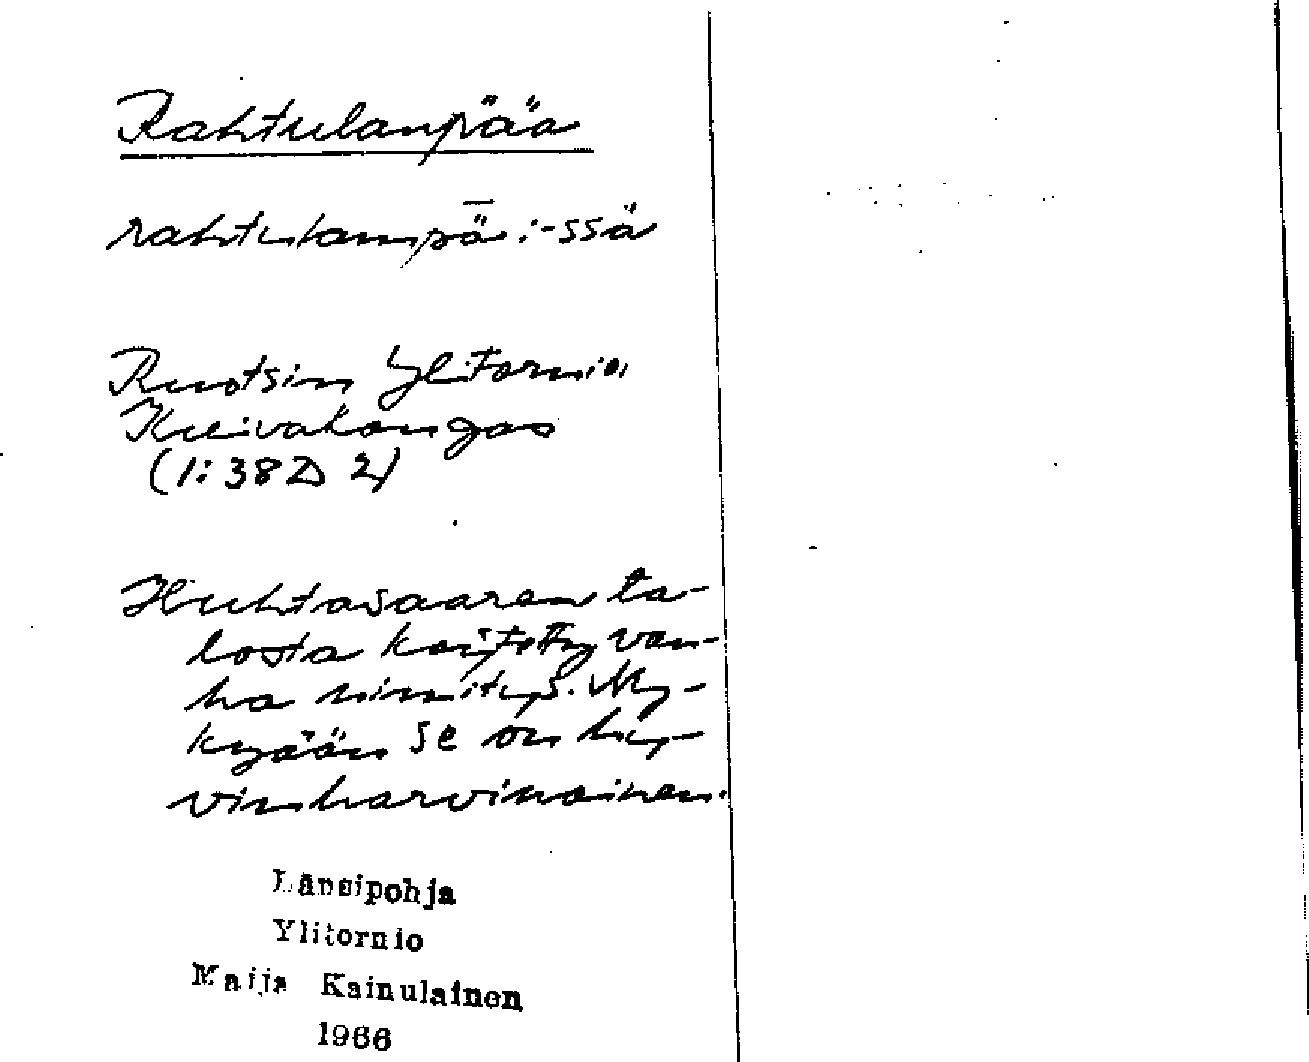 Rahtulanpää
rahtulampǟ:-ssä
Ruotsin Ylitornio
Kuivakangas
(1:38D 2)
Huhtasaaren ta-
losta käytetty van-
ha nimitys. Ny-
kyään se on hy-
vin harvinainen.
Länsipohja
Ylitornio
Maija Kainulainen
1966